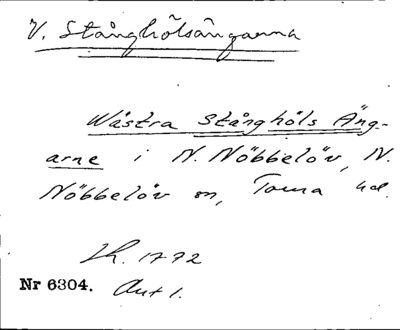 V. Stånghölsängarna
Wästra Stånghöls Äng-
arne i N. Nöbbelöv, N.
Nöbbelöv sn, Torna hd.
Lh. 1772
Nr 6304. Akt 1.